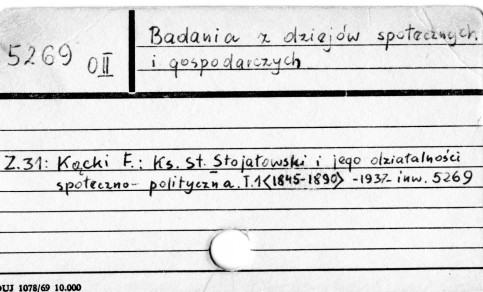 5269 OII
Badania z dziejów społecznych
i gospodarczych
Z.31: Kącki F.: Ks. St. Stojałowski i jego działalności
społeczno-polityczna. T.1<1845-1890> -1937- inw. 5269
DUJ 1078/69 10.000